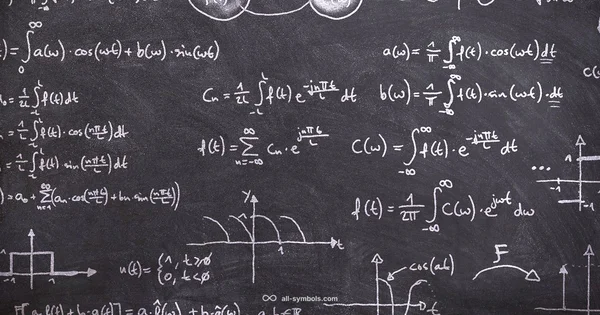 ) = ∫₀^∞ a(ω) · cos(ωt) + b(ω) · sin(ωt)
a(ω) = 1/π ∫_{-∞}^{∞} f(t) · cos(ωt) dt
b(ω) = 1/π ∫_{-∞}^{∞} f(t) · sin(ωt) · dt
C(
₀ = 1/2L ∫_{-L}^{L} f(t) dt
Cn = 1/2L ∫_{-L}^{L} f(t) e^{-jnπt/L} dt
= 1/L ∫_{-L}^{L} f(t) · cos(nπt/L) dt
= 1/L ∫_{-L}^{L} f(t) sin(nπt/L) dt
f(t) = Σ_{n=-∞}^{∞} Cn · e^{jnπt/L}
C(ω) = ∫_{-∞}^{∞} f(t) · e^{-jnπt/L} dt
) = a₀ + Σ_{n=1}^{∞} (an · cos(nπt/L) + bn · sin(nπt/L))
f(t) = 1/2π ∫_{-∞}^{∞} C(ω) · e^{jωt} dω
...
1
-1
y
1
t
1
u(t) = { 1, t ≥ 0
0, t < 0
cos(at)
t
F
∞ all-symbols.com